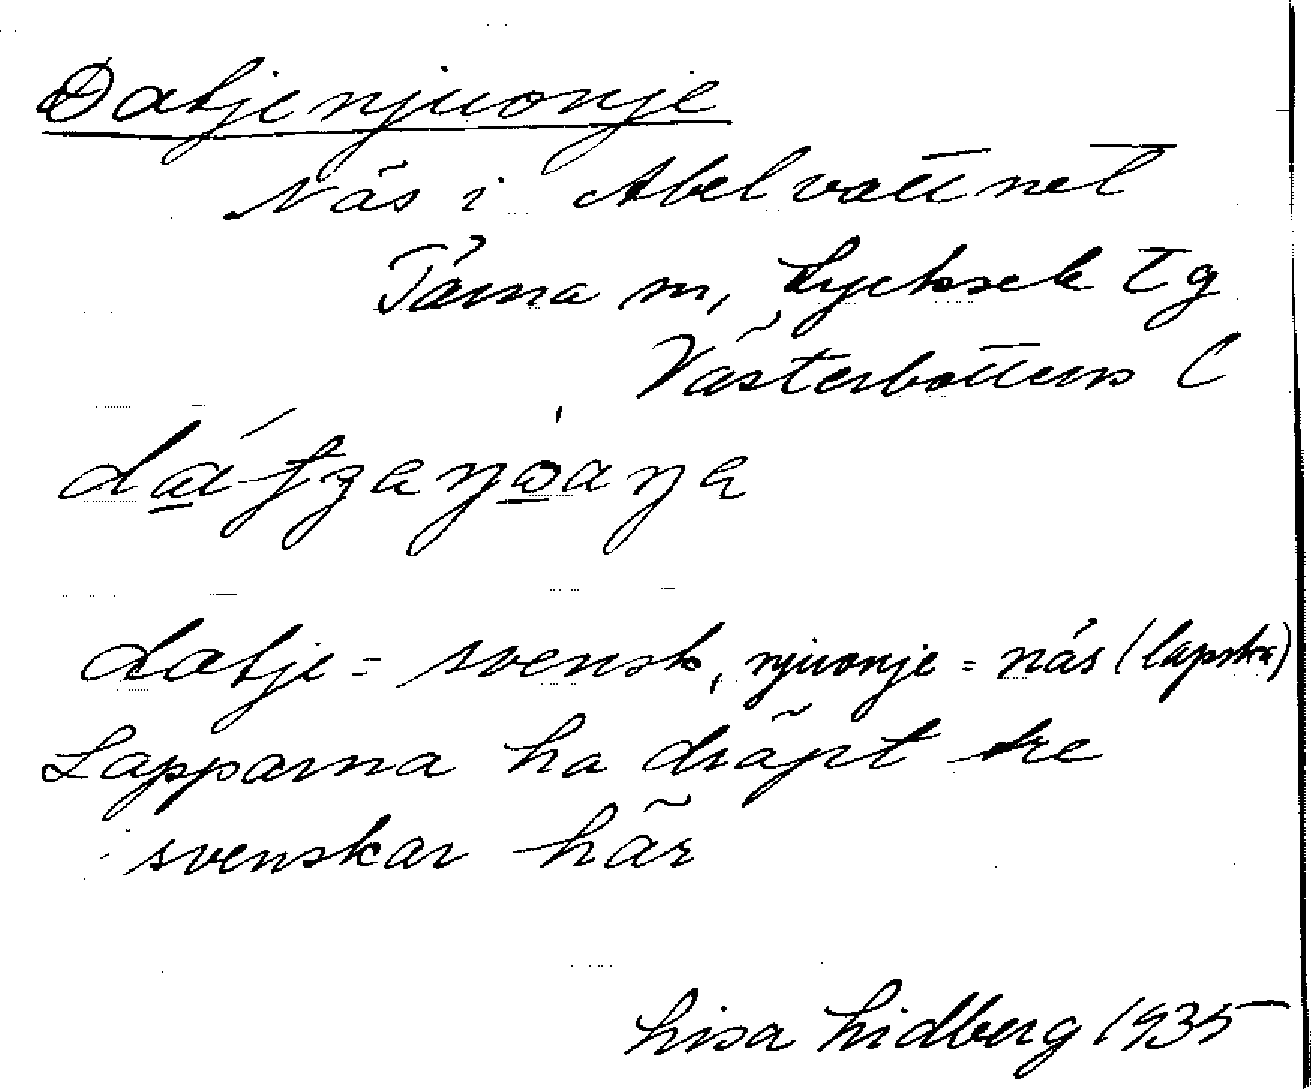 Datjenjuonje
Näs i Abelvattnet
Tärna sn, Lycksele tg
Västerbottens l
datje = svensk, njuonje = näs (lapska)
Lapparna ha dräpt tre
svenskar här
Lisa Lidberg 1935